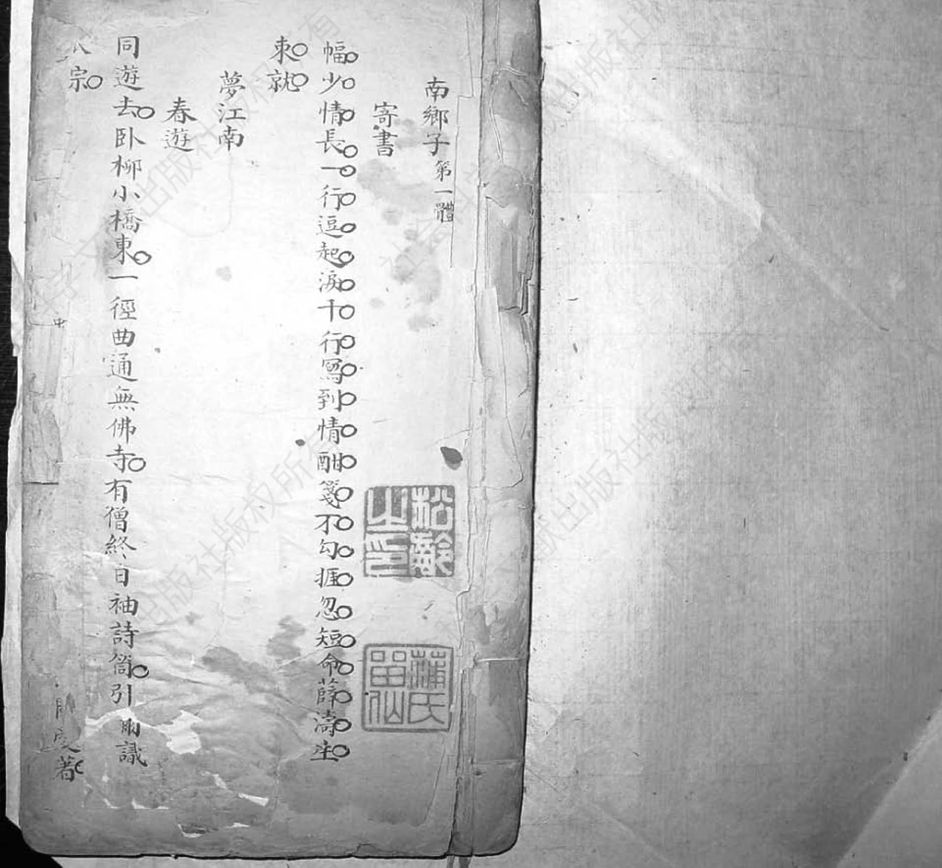 南鄉子第一體
寄書
幅少情長一行逗起淚十行寫到情酣箋不勾捱忽短命薛濤生
束就
夢江南
春遊
同遊去卧柳小橋東一徑曲通無佛寺有僧終日袖詩筒引爾識
宗
著
松齡之印
蒲氏留仙